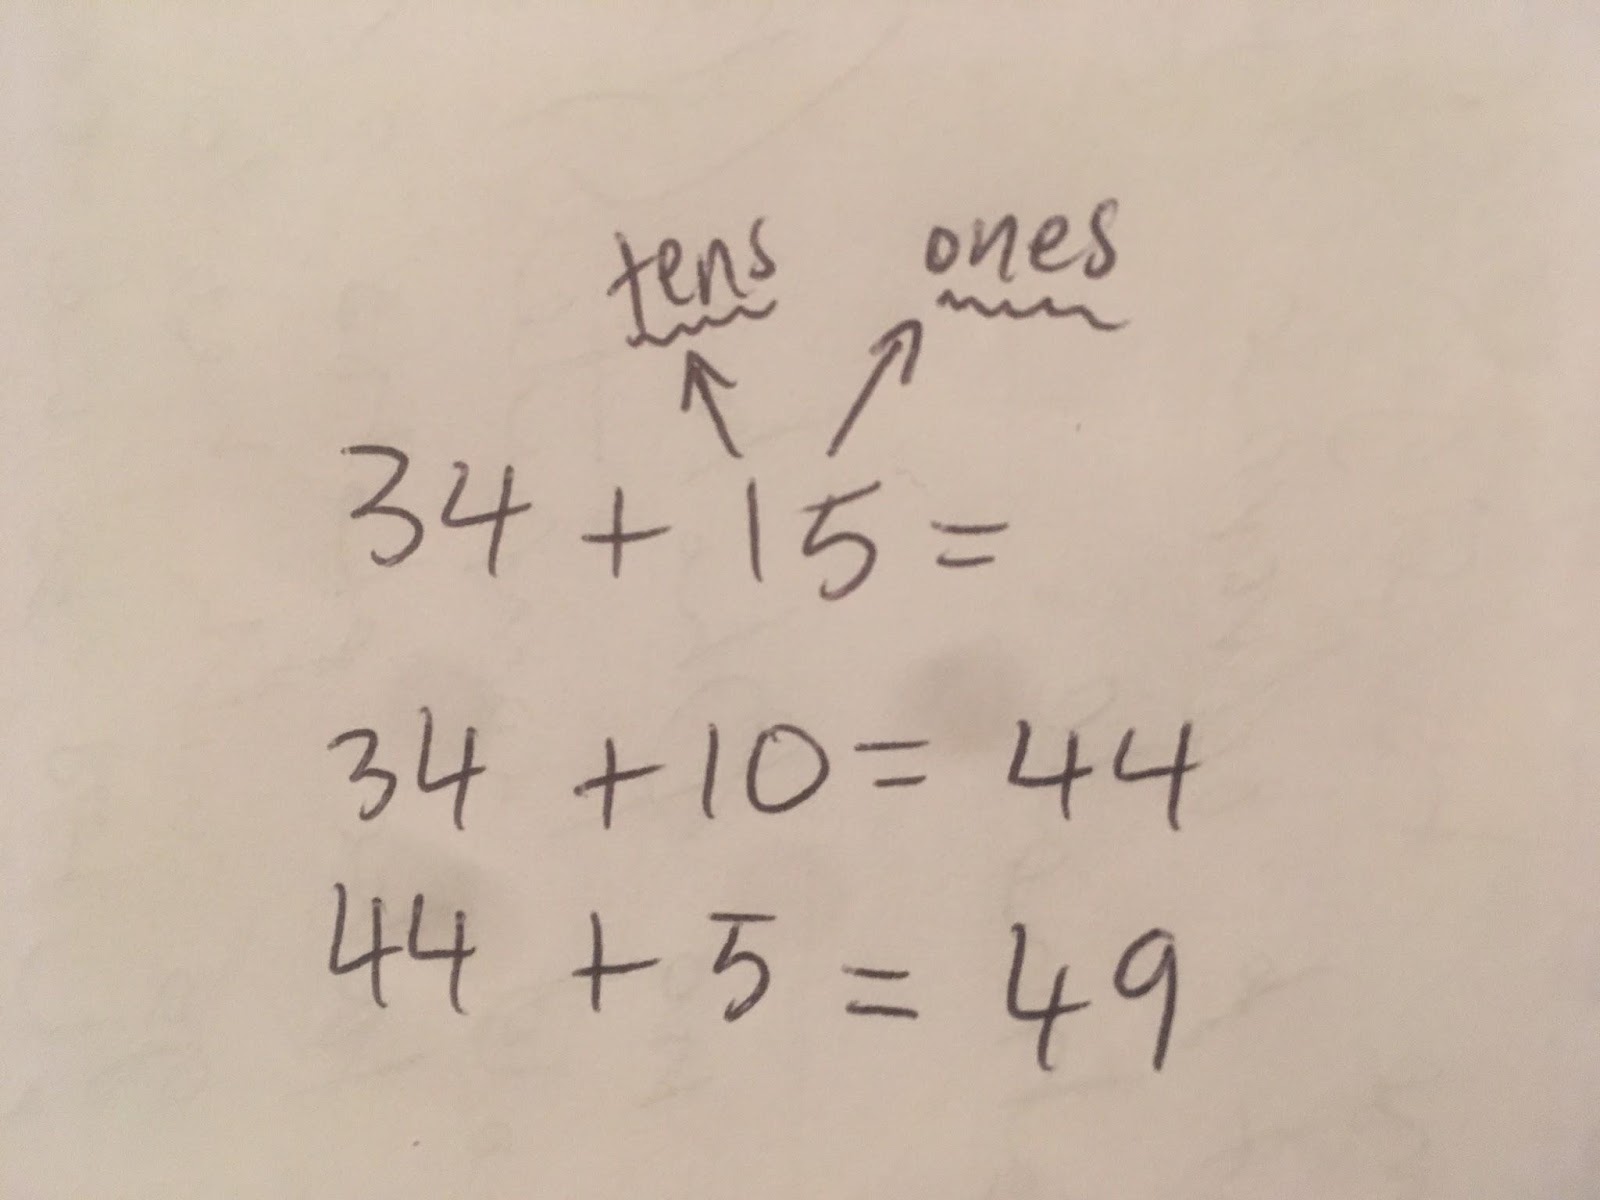 tens ones
34 + 15 =
34 + 10 = 44
44 + 5 = 49